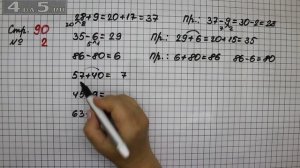 Стр. 90
№ 2
28+9=20+17=37 Пр.: 37-9=30-2=28
35-6=29 Пр.: 29+6=20+15=35
5 1
86-80=6 Пр.: 6+80=86 86-6=80
57+40= 7
63-